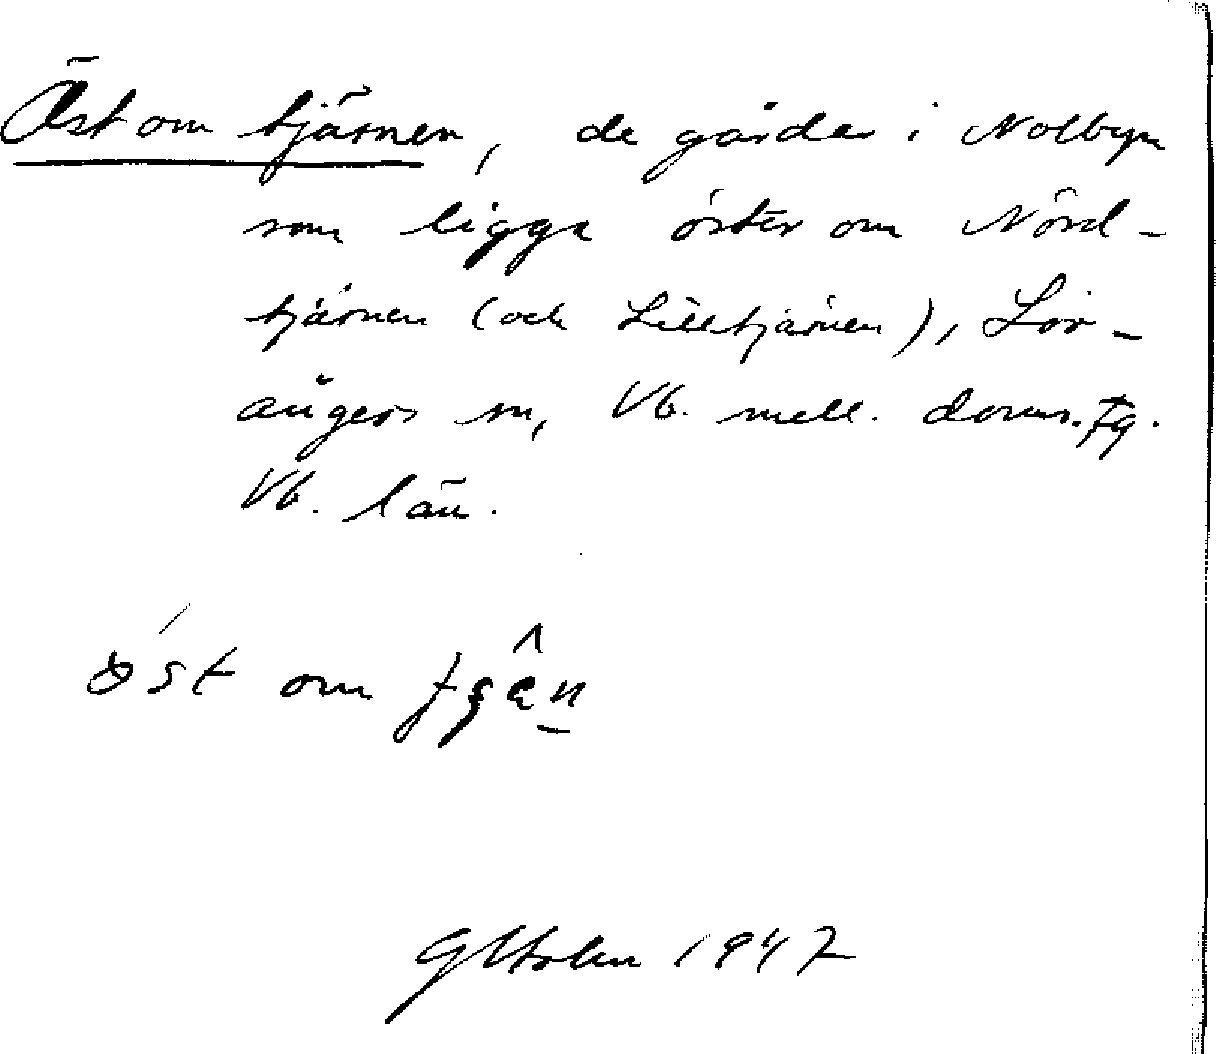 Öst om tjärnen, de gårdar i Nolbyn
som ligga öster om Nörd-
tjärnen (och Lilltjärnen), Löv-
ångers sn, Vb. mell. doms.
Vb. län.
öst om
1947